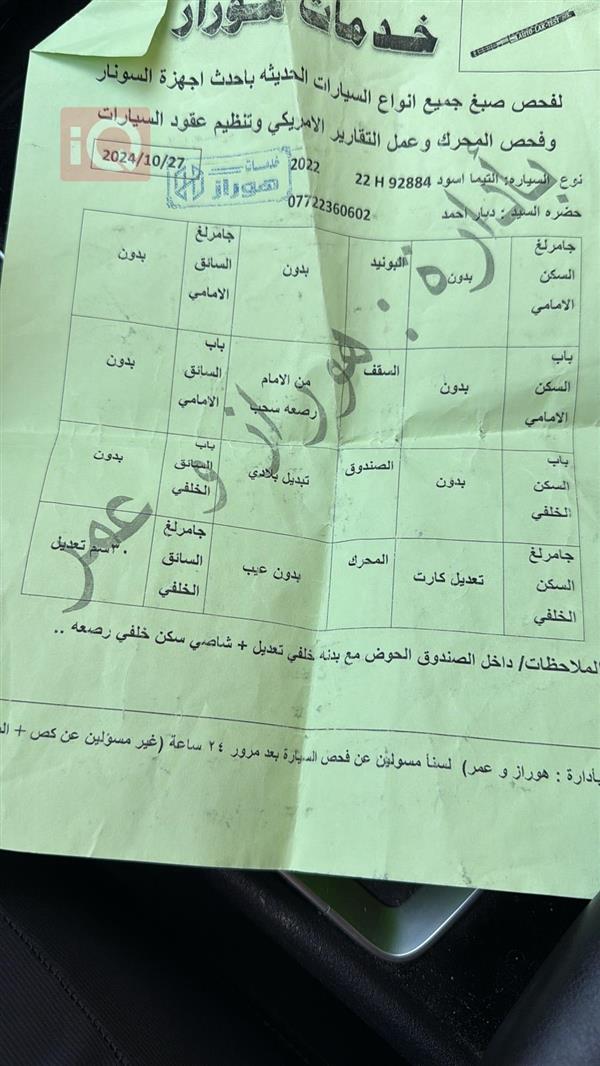 خدمات هوراز
AUTO-LAK-TEST
لفحص صبغ جميع انواع السيارات الحديثه باحدث اجهزة السونار
وفحص المحرك وعمل التقارير الامريكي وتنظيم عقود السيارات
iQ
2024/10/27
خدمات
هوراز
نوع السياره: التيما اسود 22 H 92884 2022
حضره السيد : ديار احمد 07722360602
بأدارة : هوراز و عمر
جامرلغ السكن الامامي
بدون
البونيد
بدون
جامرلغ السائق الامامي
بدون
باب السكن الامامي
بدون
السقف
من الامام رصعه سحب
باب السائق الامامي
بدون
باب السكن الخلفي
بدون
الصندوق
تبديل بلادي
باب السائق الخلفي
بدون
جامرلغ السكن الخلفي
تعديل كارت
المحرك
بدون عيب
جامرلغ السائق الخلفي
٣٠سم تعديل
الملاحظات/ داخل الصندوق الحوض مع بدنه خلفي تعديل + شاصي سكن خلفي رصعه ..
بأدارة : هوراز و عمر) لسنأ مسولين عن فحص السيارة بعد مرور ٢٤ ساعة (غير مسؤلين عن كص +